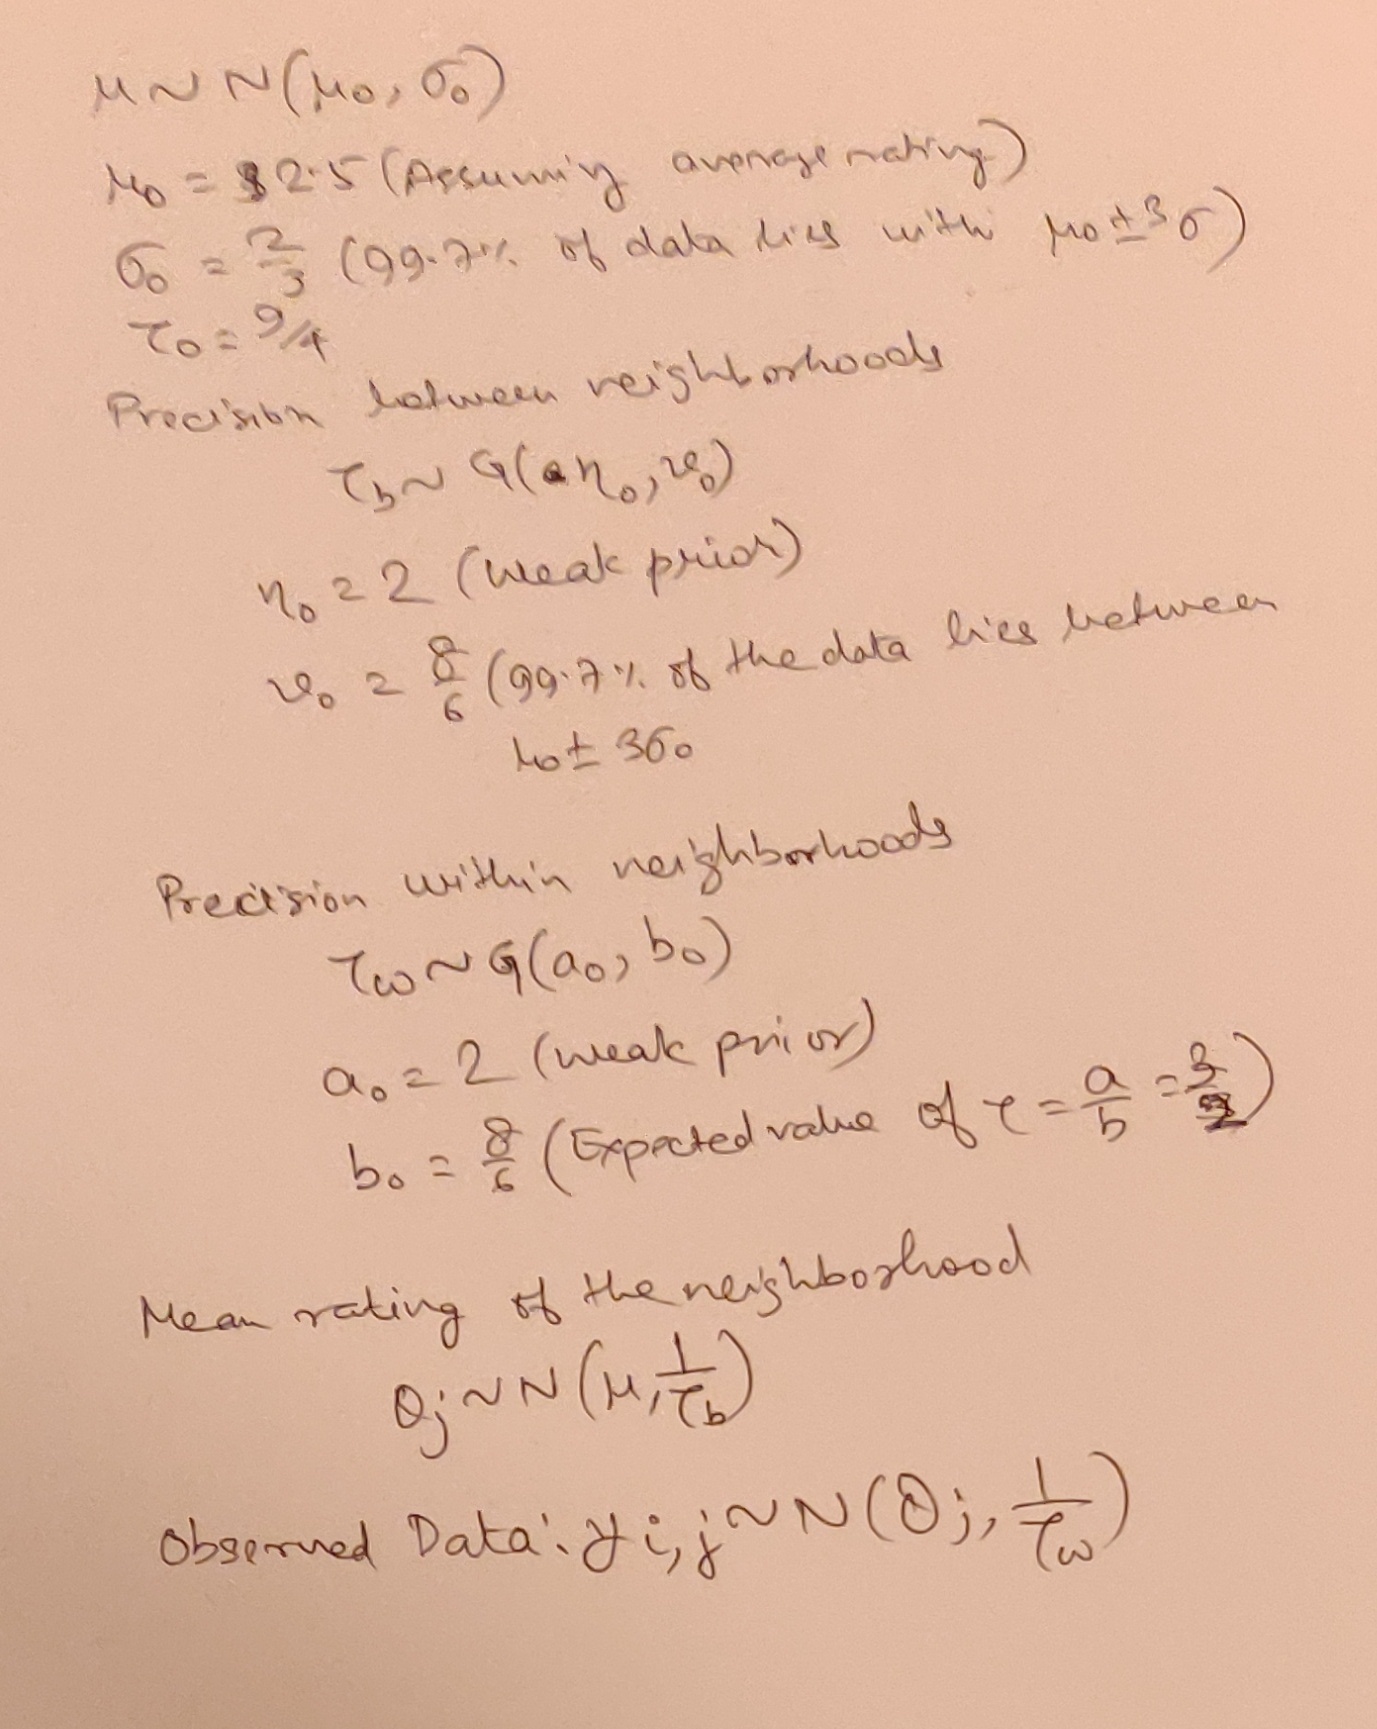 μ ~ N(μ₀, σ₀)
μ₀ = 2.5 (Assuming average rating)
σ₀ = 2/3 (99.7% of data lies with μ₀ ± 3σ)
τ₀ = 9/4
Precision between neighborhoods
τ_b ~ G(η₀, ν₀)
η₀ = 2 (weak prior)
ν₀ = 8/6 (99.7% of the data lies between
μ₀ ± 3σ₀
Precision within neighborhoods
τ_w ~ G(a₀, b₀)
a₀ = 2 (weak prior)
b₀ = 8/6 (Expected value of τ = a/b = 3/2)
Mean rating of the neighborhood
θ_j ~ N(μ, 1/τ_b)
Observed Data: y_{i,j} ~ N(θ_j, 1/τ_w)